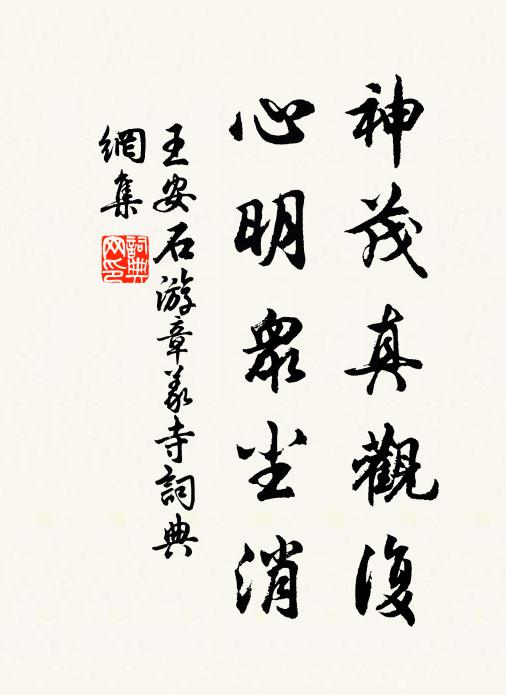 神茂真觀復
心明眾尘消
王安石游章义寺詞典
網集
詞典
网印